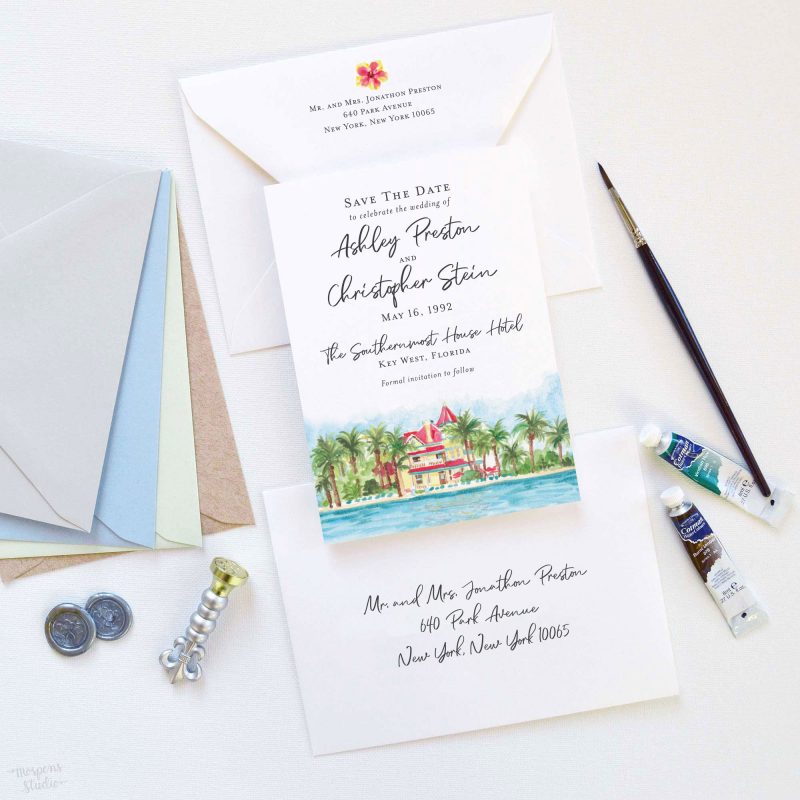 Mr. and Mrs. Jonathon Preston
640 Park Avenue
New York, New York 10065
Save The Date
to celebrate the wedding of
Ashley Preston
and
Christopher Stein
May 16, 1992
The Southernmost House Hotel
Key West, Florida
Formal invitation to follow
Mr. and Mrs. Jonathon Preston
640 Park Avenue
New York, New York 10065
Cotman
Cotman
mospens
studio